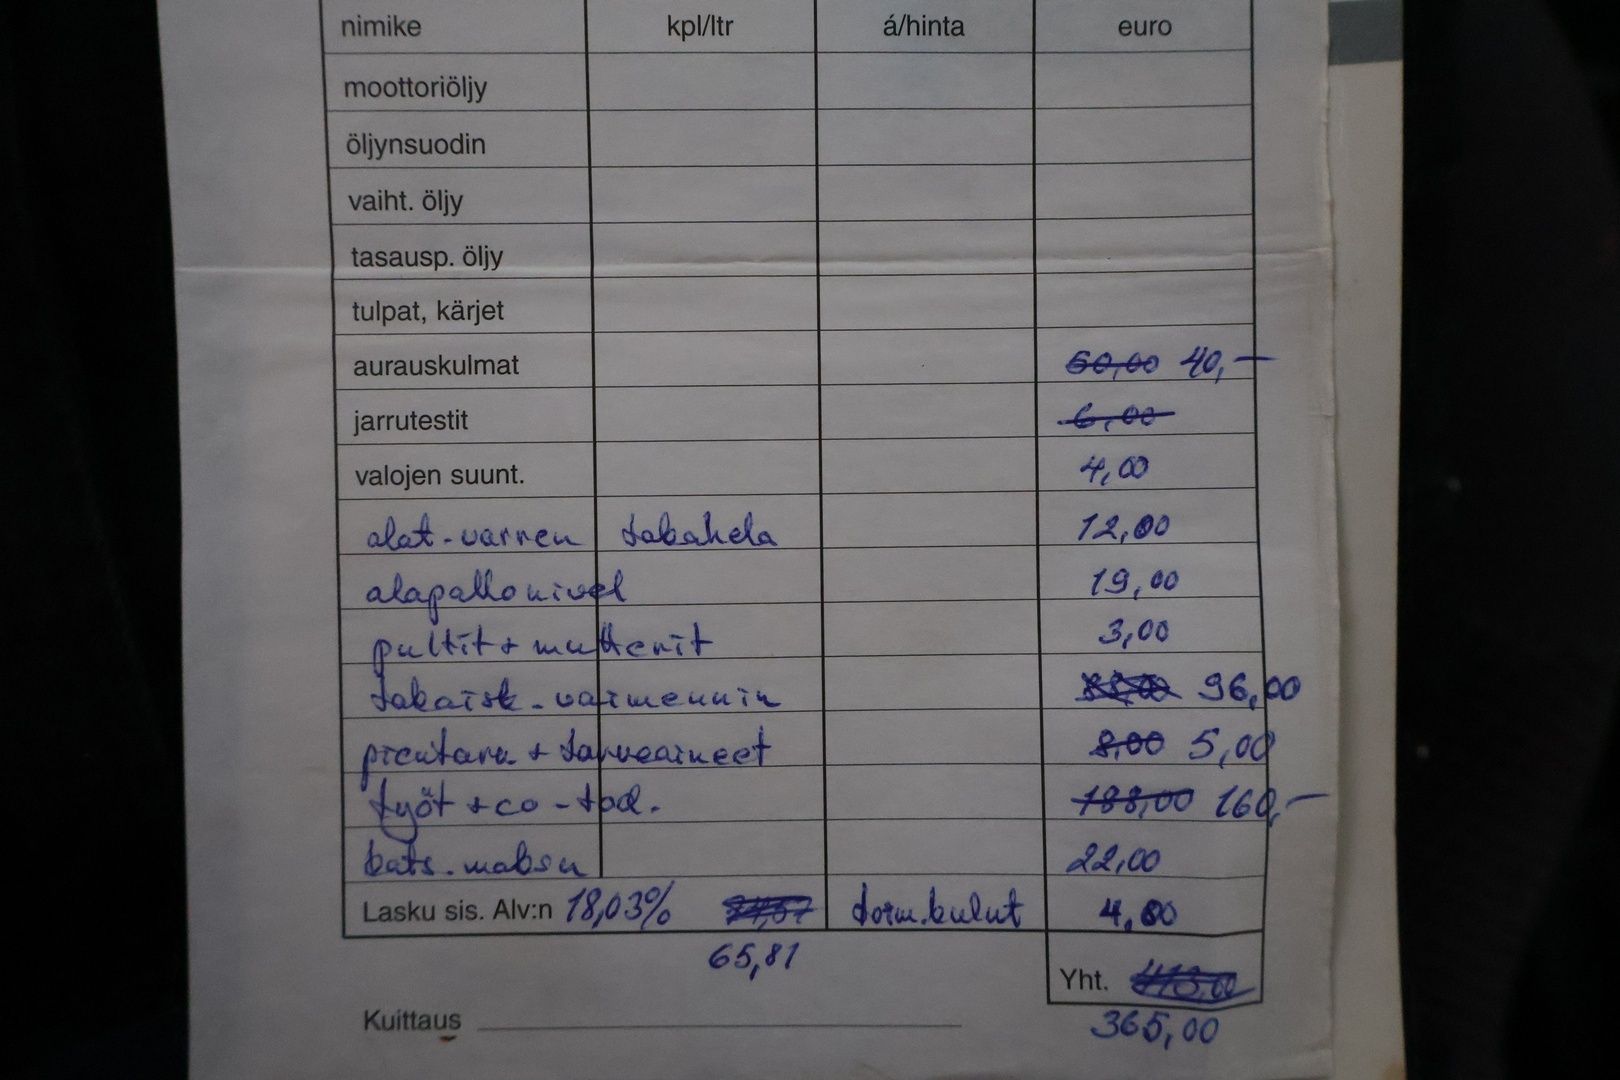 nimike kpl/ltr á/hinta euro
moottoriöljy
öljynsuodin
vaiht. öljy
tasausp. öljy
tulpat, kärjet
aurauskulmat 60,00 40,—
jarrutestit 6,00
valojen suunt. 4,00
alat-varren takahela 12,00
alapallonivel 19,00
pultit + mutterit 3,00
takaisk-vaimennin 96,00
pientarv. + tarveaineet 8,00 5,00
työt + co-tod. 188,00 160,—
kats.maksu 22,00
Lasku sis. Alv:n 18,03% toim.kulut 4,00
65,81
Yht. 413,00
Kuittaus 365,00